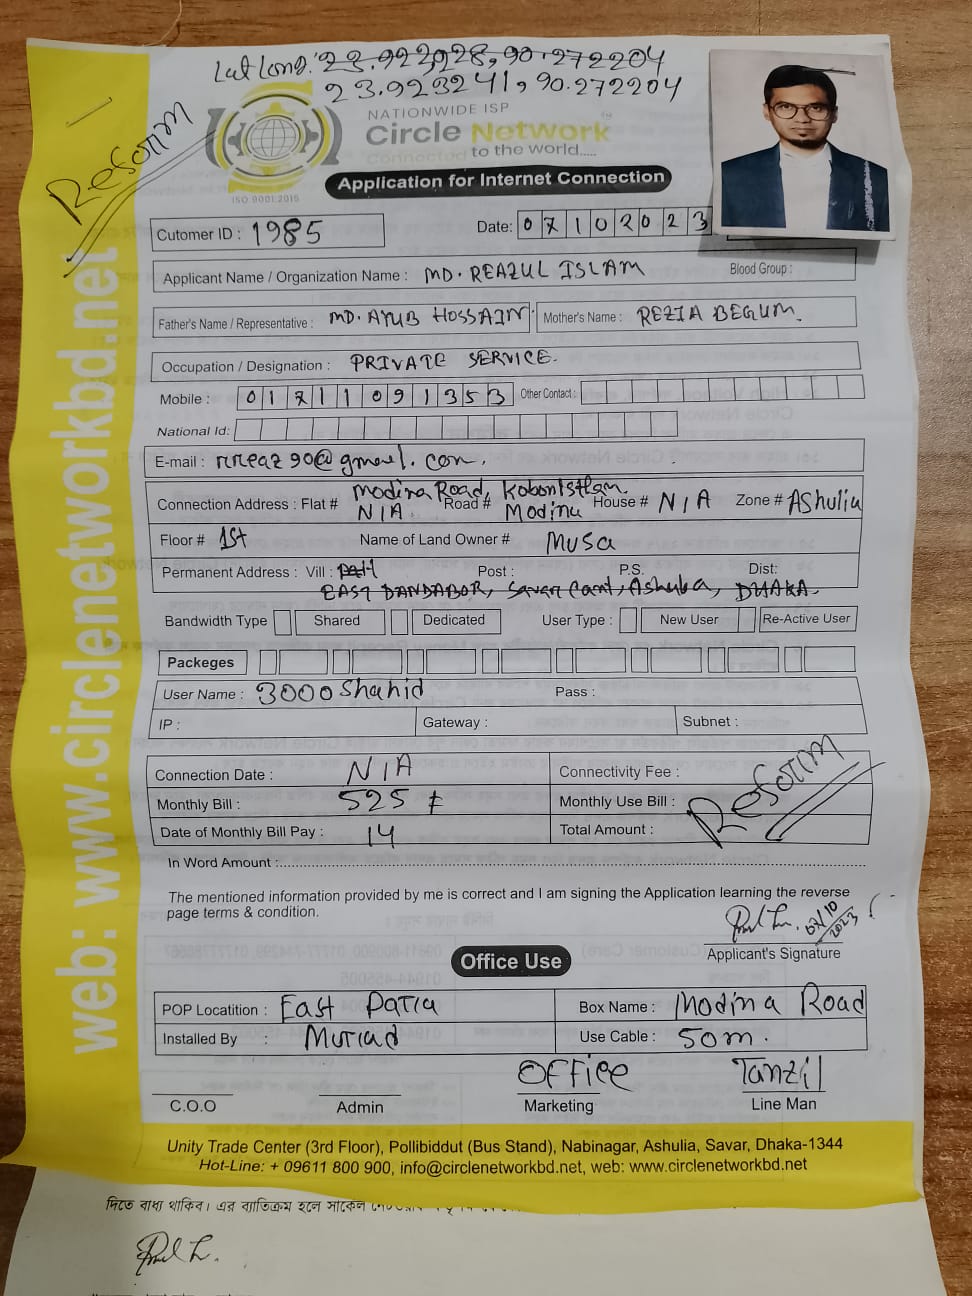 Lat Long: 23.922928, 90.272204
23.923241, 90.272204
Reform
NATIONWIDE ISP
Circle Network
Connected to the world.....
ISO 9001:2015
Application for Internet Connection
Cutomer ID : 1985 Date: 07102023
Applicant Name / Organization Name : MD. REAZUL ISLAM Blood Group :
Father's Name / Representative : MD. AYUB HOSSAIN Mother's Name : REZIA BEGUM.
Occupation / Designation : PRIVATE SERVICE.
Mobile : 01711091353 Other Contact :
National Id:
E-mail : rreaz90@gmail.com.
Modina Road, Kobonisthan
Connection Address : Flat # N/A Road # Modina House # N/A Zone # Ashulia
Floor # 1st Name of Land Owner # Musa
Permanent Address : Vill : Post : P.S. Dist:
EAST DANDABOR, Savar Cant, Ashulia, DHAKA.
Bandwidth Type Shared Dedicated User Type : New User Re-Active User
Packeges
User Name : 3000 Shahid Pass :
IP : Gateway : Subnet :
Connection Date : N/A Connectivity Fee :
Monthly Bill : 525 Monthly Use Bill : Reform
Date of Monthly Bill Pay : 14 Total Amount :
In Word Amount :
The mentioned information provided by me is correct and I am signing the Application learning the reverse
page terms & condition.
07/10/2023
Applicant's Signature
Office Use
POP Locatition : East Patia Box Name : Modina Road
Installed By : Muriad Use Cable : 50m.
OFFice Tanzil
C.O.O Admin Marketing Line Man
Unity Trade Center (3rd Floor), Pollibiddut (Bus Stand), Nabinagar, Ashulia, Savar, Dhaka-1344
Hot-Line: + 09611 800 900, info@circlenetworkbd.net, web: www.circlenetworkbd.net
web: www.circlenetworkbd.net
দিতে বাধ্য থাকিব। এর ব্যাতিক্রম হলে সার্কেল